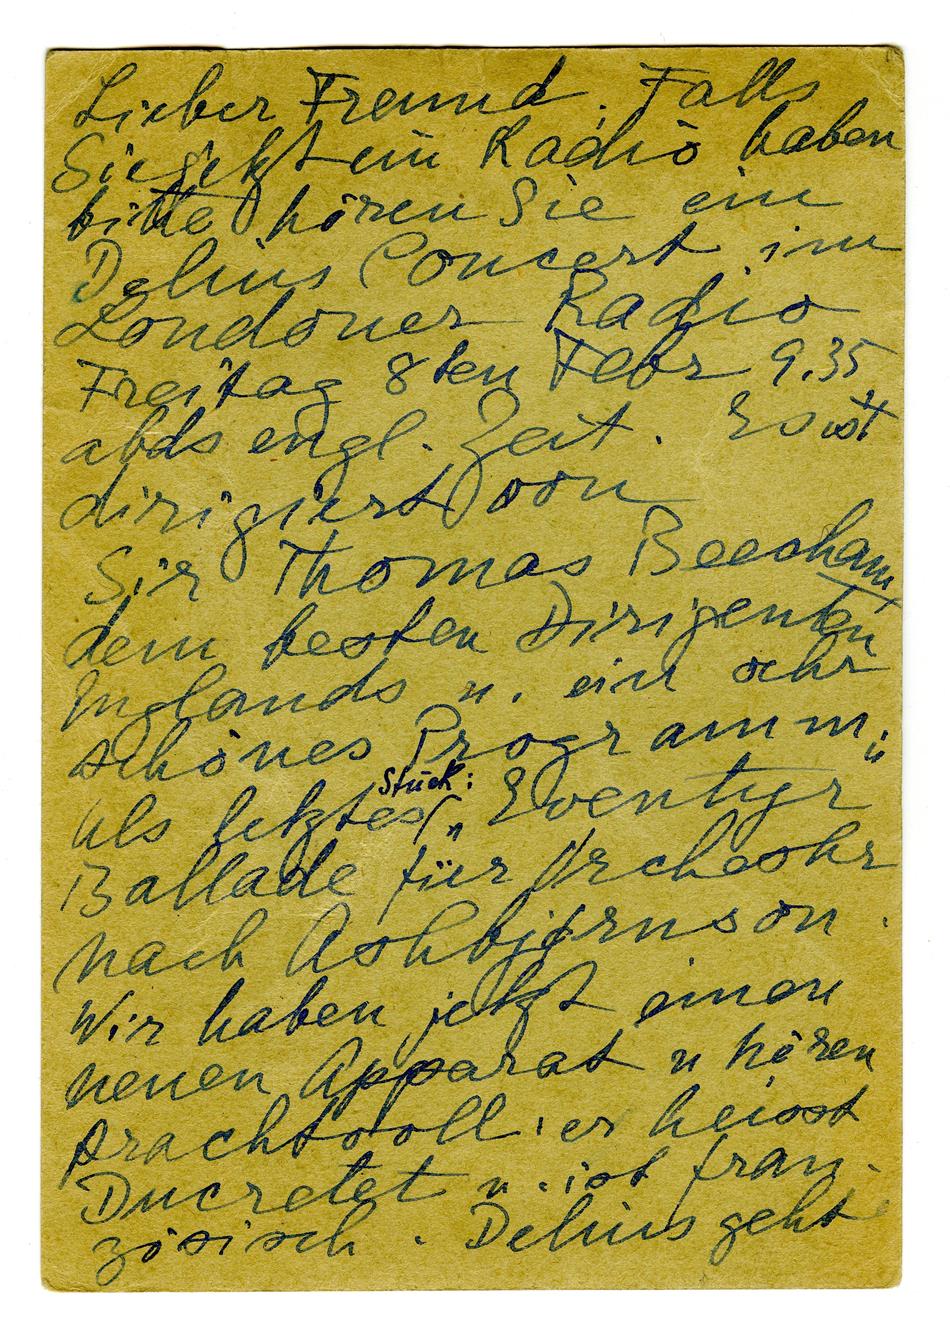 Lieber Freund. Falls
Sie jetzt ein Radio haben
bitte hören Sie ein
Delius Concert im
Londoner Radio
Freitag 8ten Febr 9.35
abds engl. Zeit. Es ist
dirigiert von
Sir Thomas Beecham
dem besten Dirigenten
Englands u. ein sehr
schönes Programm;
als letztes Stück: „Eventyr"
Ballade für Orchester
nach Ashbjørnson.
Wir haben jetzt einen
neuen Apparat u hören
prachtvoll: er heisst
Ducretet u. ist fran-
zösisch. Delius geht